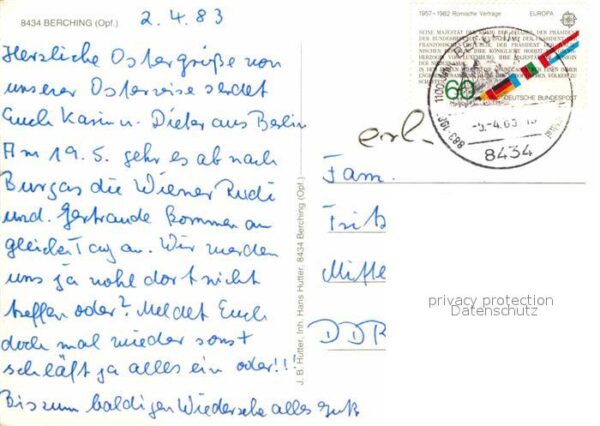 8434 BERCHING (Opf.)
2.4.83
Herzliche Ostergrüße von
unserer Osterreise sendet
Euch Karin u. Dieter aus Berlin
Am 19.5. geht es ab nach
Burgas die Wiener Rudi
und. Gertraude kommen am
gleichen Tag an. Wir werden
uns ja wohl dort nicht
treffen oder? Meldet Euch
doch mal wieder sonst
schläft ja alles ein oder!!!
Bis zum baldigen Wiedersehn alles Gute
J. B. Hutter, Inh. Hans Hutter, 8434 Berching (Opf.)
1957-1982 Römische Verträge EUROPA
60
DEUTSCHE BUNDESPOST
8434
erl.
Fam.
Fritz
Mitte
DDR
privacy protection
Datenschutz